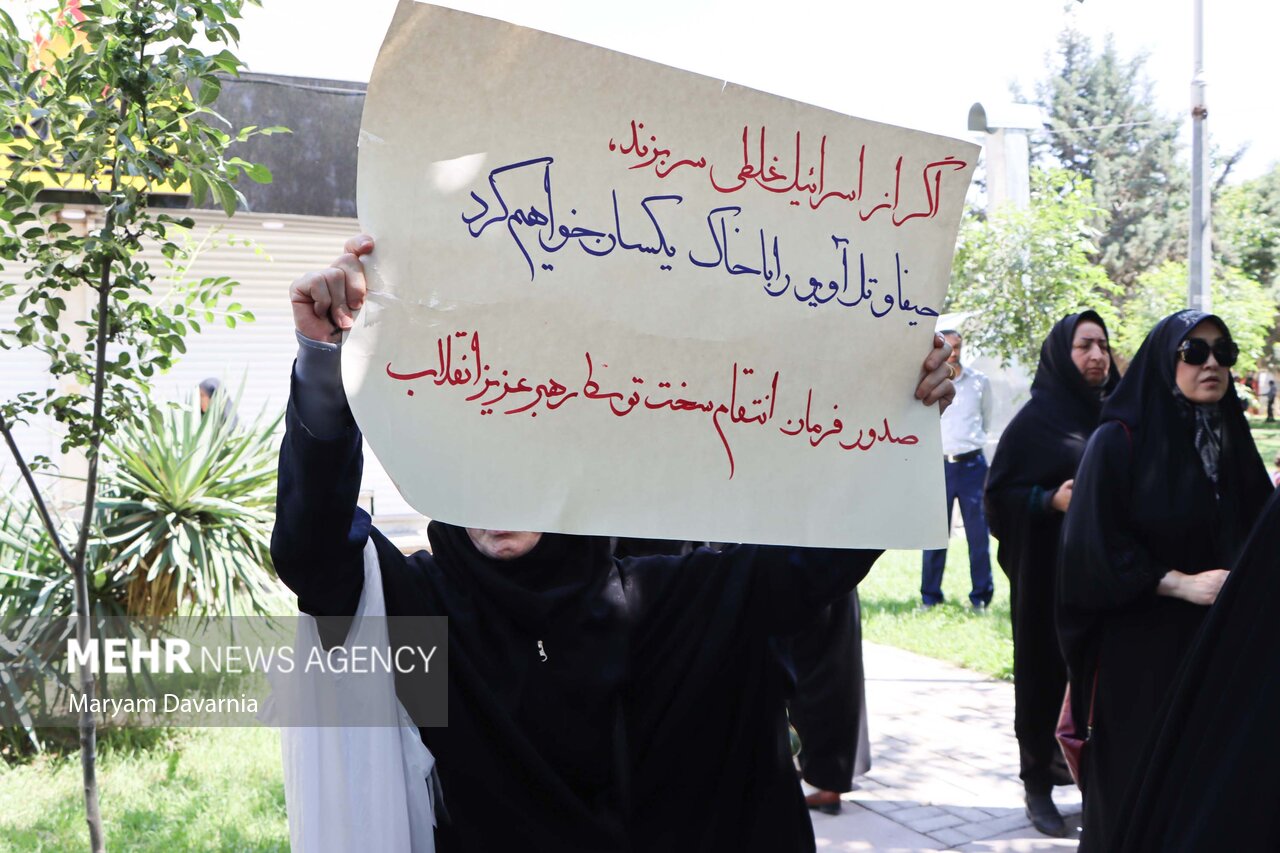 اگر از اسرائیل غلطی سر بزند،
حیفا و تل آویو را با خاک یکسان خواهیم کرد
صدور فرمان انتقام سخت توسط رهبر عزیز انقلاب
MEHR NEWS AGENCY
Maryam Davarnia